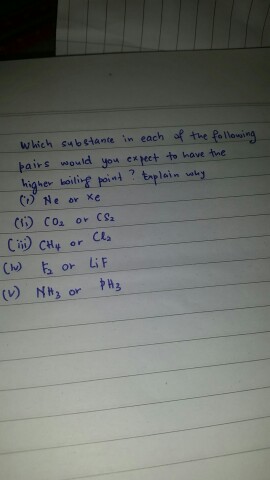 Which substance in each of the following
pairs would you expect to have the
higher boiling point ? Explain why
(i) Ne or Xe
(ii) CO2 or CS2
(iii) CH4 or Cl2
(iv) F2 or LiF
(v) NH3 or PH3